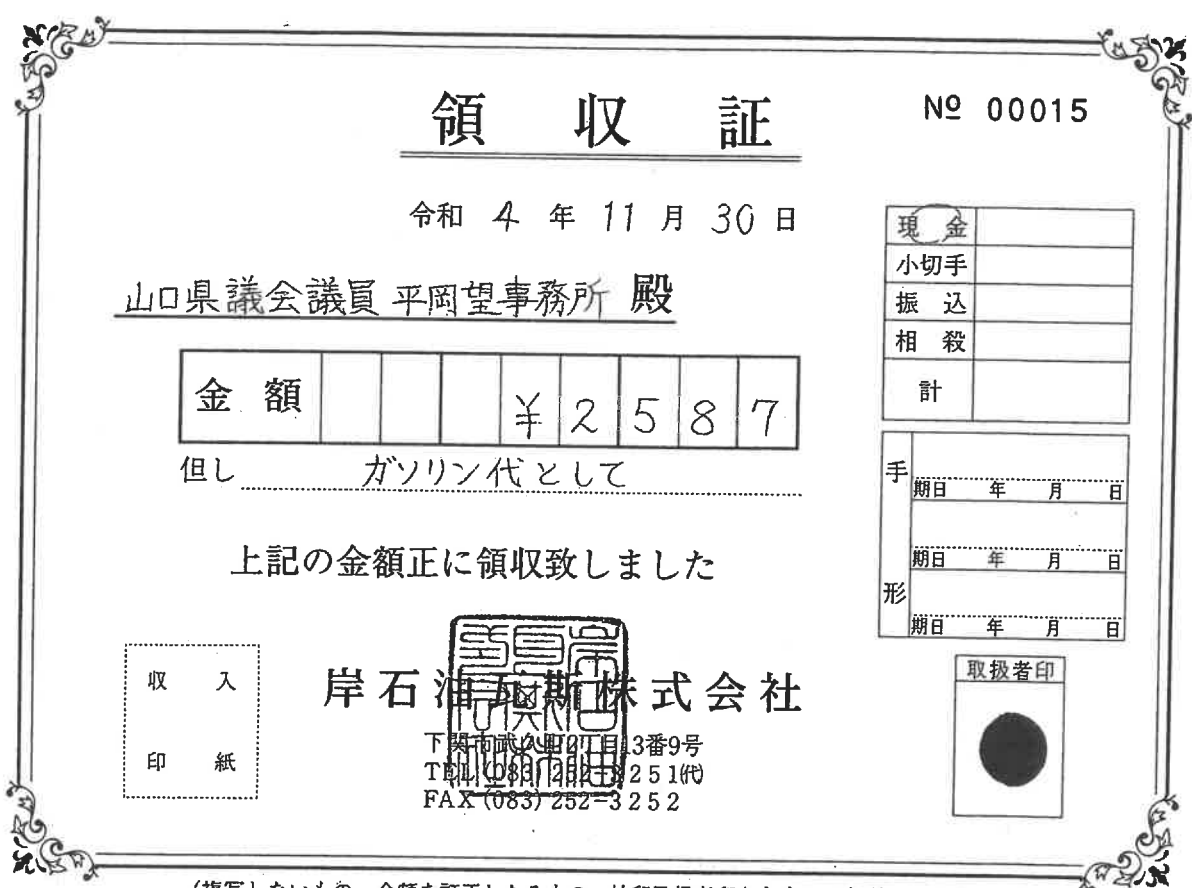 領収証
№ 00015
令和 4 年 11 月 30 日
山口県議会議員 平岡望事務所 殿
金額 ¥2587
但し ガソリン代として
上記の金額正に領収致しました
収入
印紙
岸石油瓦斯株式会社
下関市武久町2丁目13番9号
TEL (083) 252-3251㈹
FAX (083) 252-3252
現金
小切手
振込
相殺
計
手形
期日 年 月 日
期日 年 月 日
期日 年 月 日
取扱者印